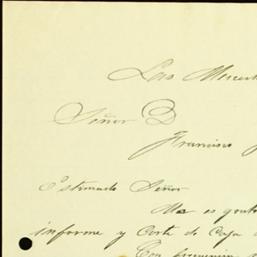 Las Merced
Señor D
Francisco
Estimado Señor
Me es grato
informe y Corte de Caja
Con